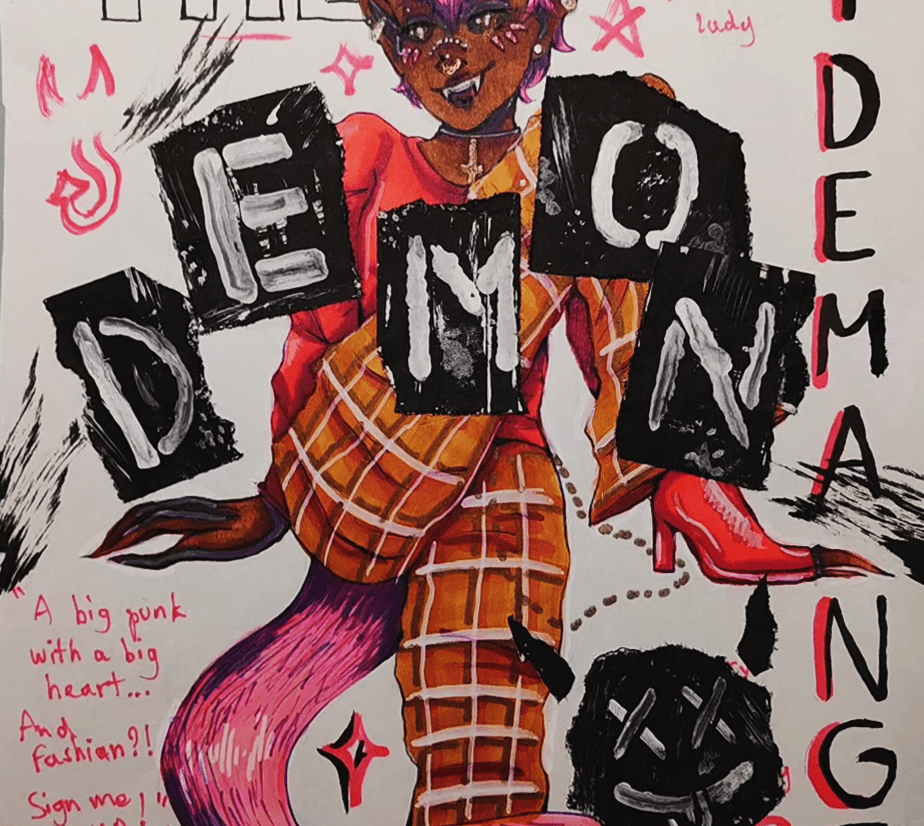 lady
DEMON
D
E
M
A
N
G
"A big punk
with a big
heart...
And
Fashion?!
Sign me